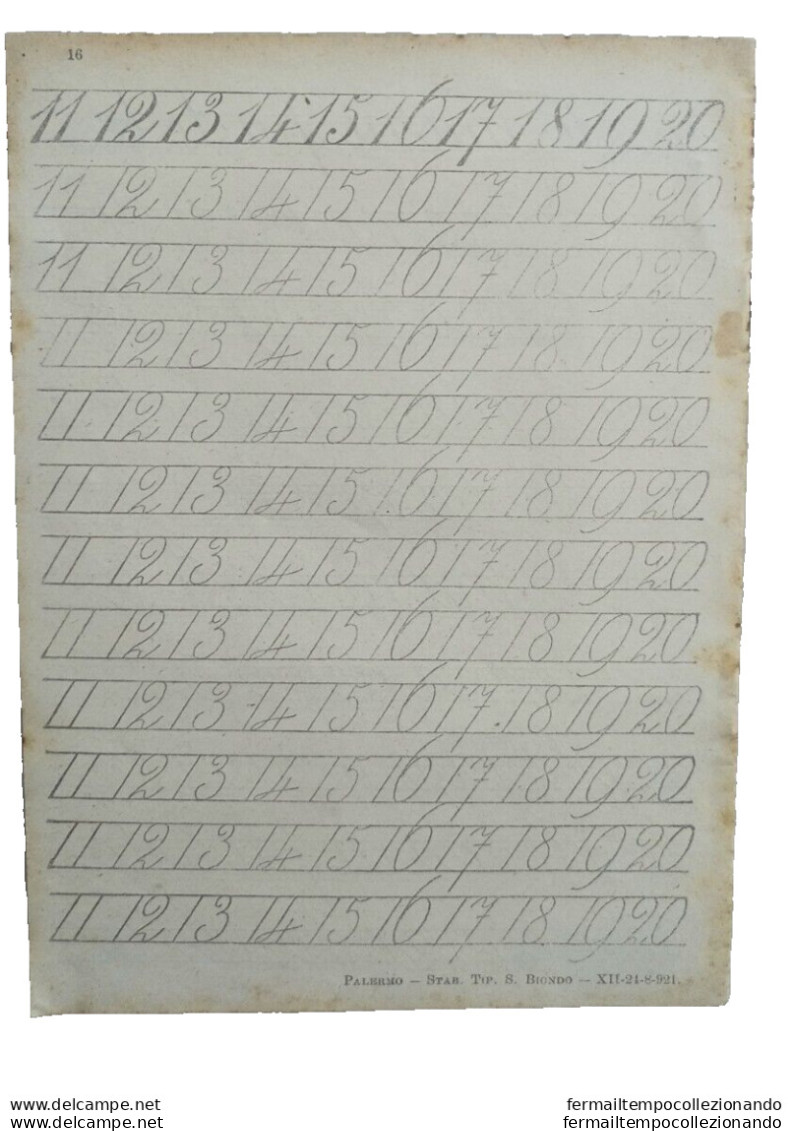 16
11 12 13 14 15 16 17 18 19 20
11 12 13 14 15 16 17 18 19 20
11 12 13 14 15 16 17 18 19 20
11 12 13 14 15 16 17 18 19 20
11 12 13 14 15 16 17 18 19 20
11 12 13 14 15 16 17 18 19 20
11 12 13 14 15 16 17 18 19 20
11 12 13 14 15 16 17 18 19 20
11 12 13 14 15 16 17 18 19 20
11 12 13 14 15 16 17 18 19 20
11 12 13 14 15 16 17 18 19 20
11 12 13 14 15 16 17 18 19 20
PALERMO — STAB. TIP. S. BIONDO — XII-24-8-921.
www.delcampe.net
fermailtempocollezionando
www.delcampe.net
fermailtempocollezionando